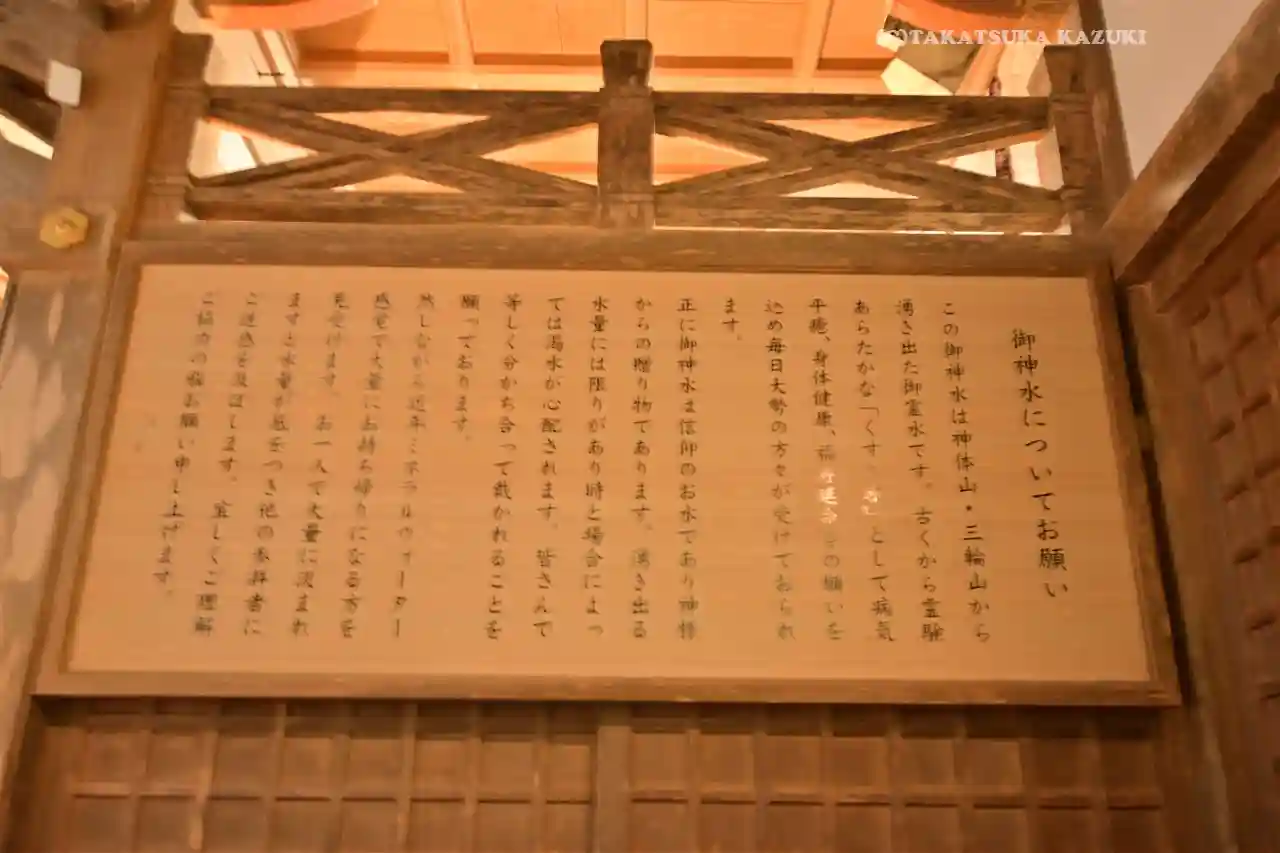 ©TAKATSUKA KAZUKI
御神水についてお願い
この御神水は神体山・三輪山から
湧き出た御霊水です。古くから霊験
あらたかな「くすり水」として病気
平癒、身体健康、福寿延命等の願いを
込め毎日大勢の方々が受けておられ
ます。
正に御神水は信仰のお水であり神様
からの贈り物であります。湧き出る
水量には限りがあり時と場合によっ
ては渇水が心配されます。皆さんで
等しく分かち合って戴かれることを
願っております。
然しながら近年ミネラルウォーター
感覚で大量にお持ち帰りになる方を
見受けます。お一人で大量に汲まれ
ますと水量が底をつき他の参拝者に
ご迷惑を及ぼします。宜しくご理解
ご協力の程お願い申し上げます。